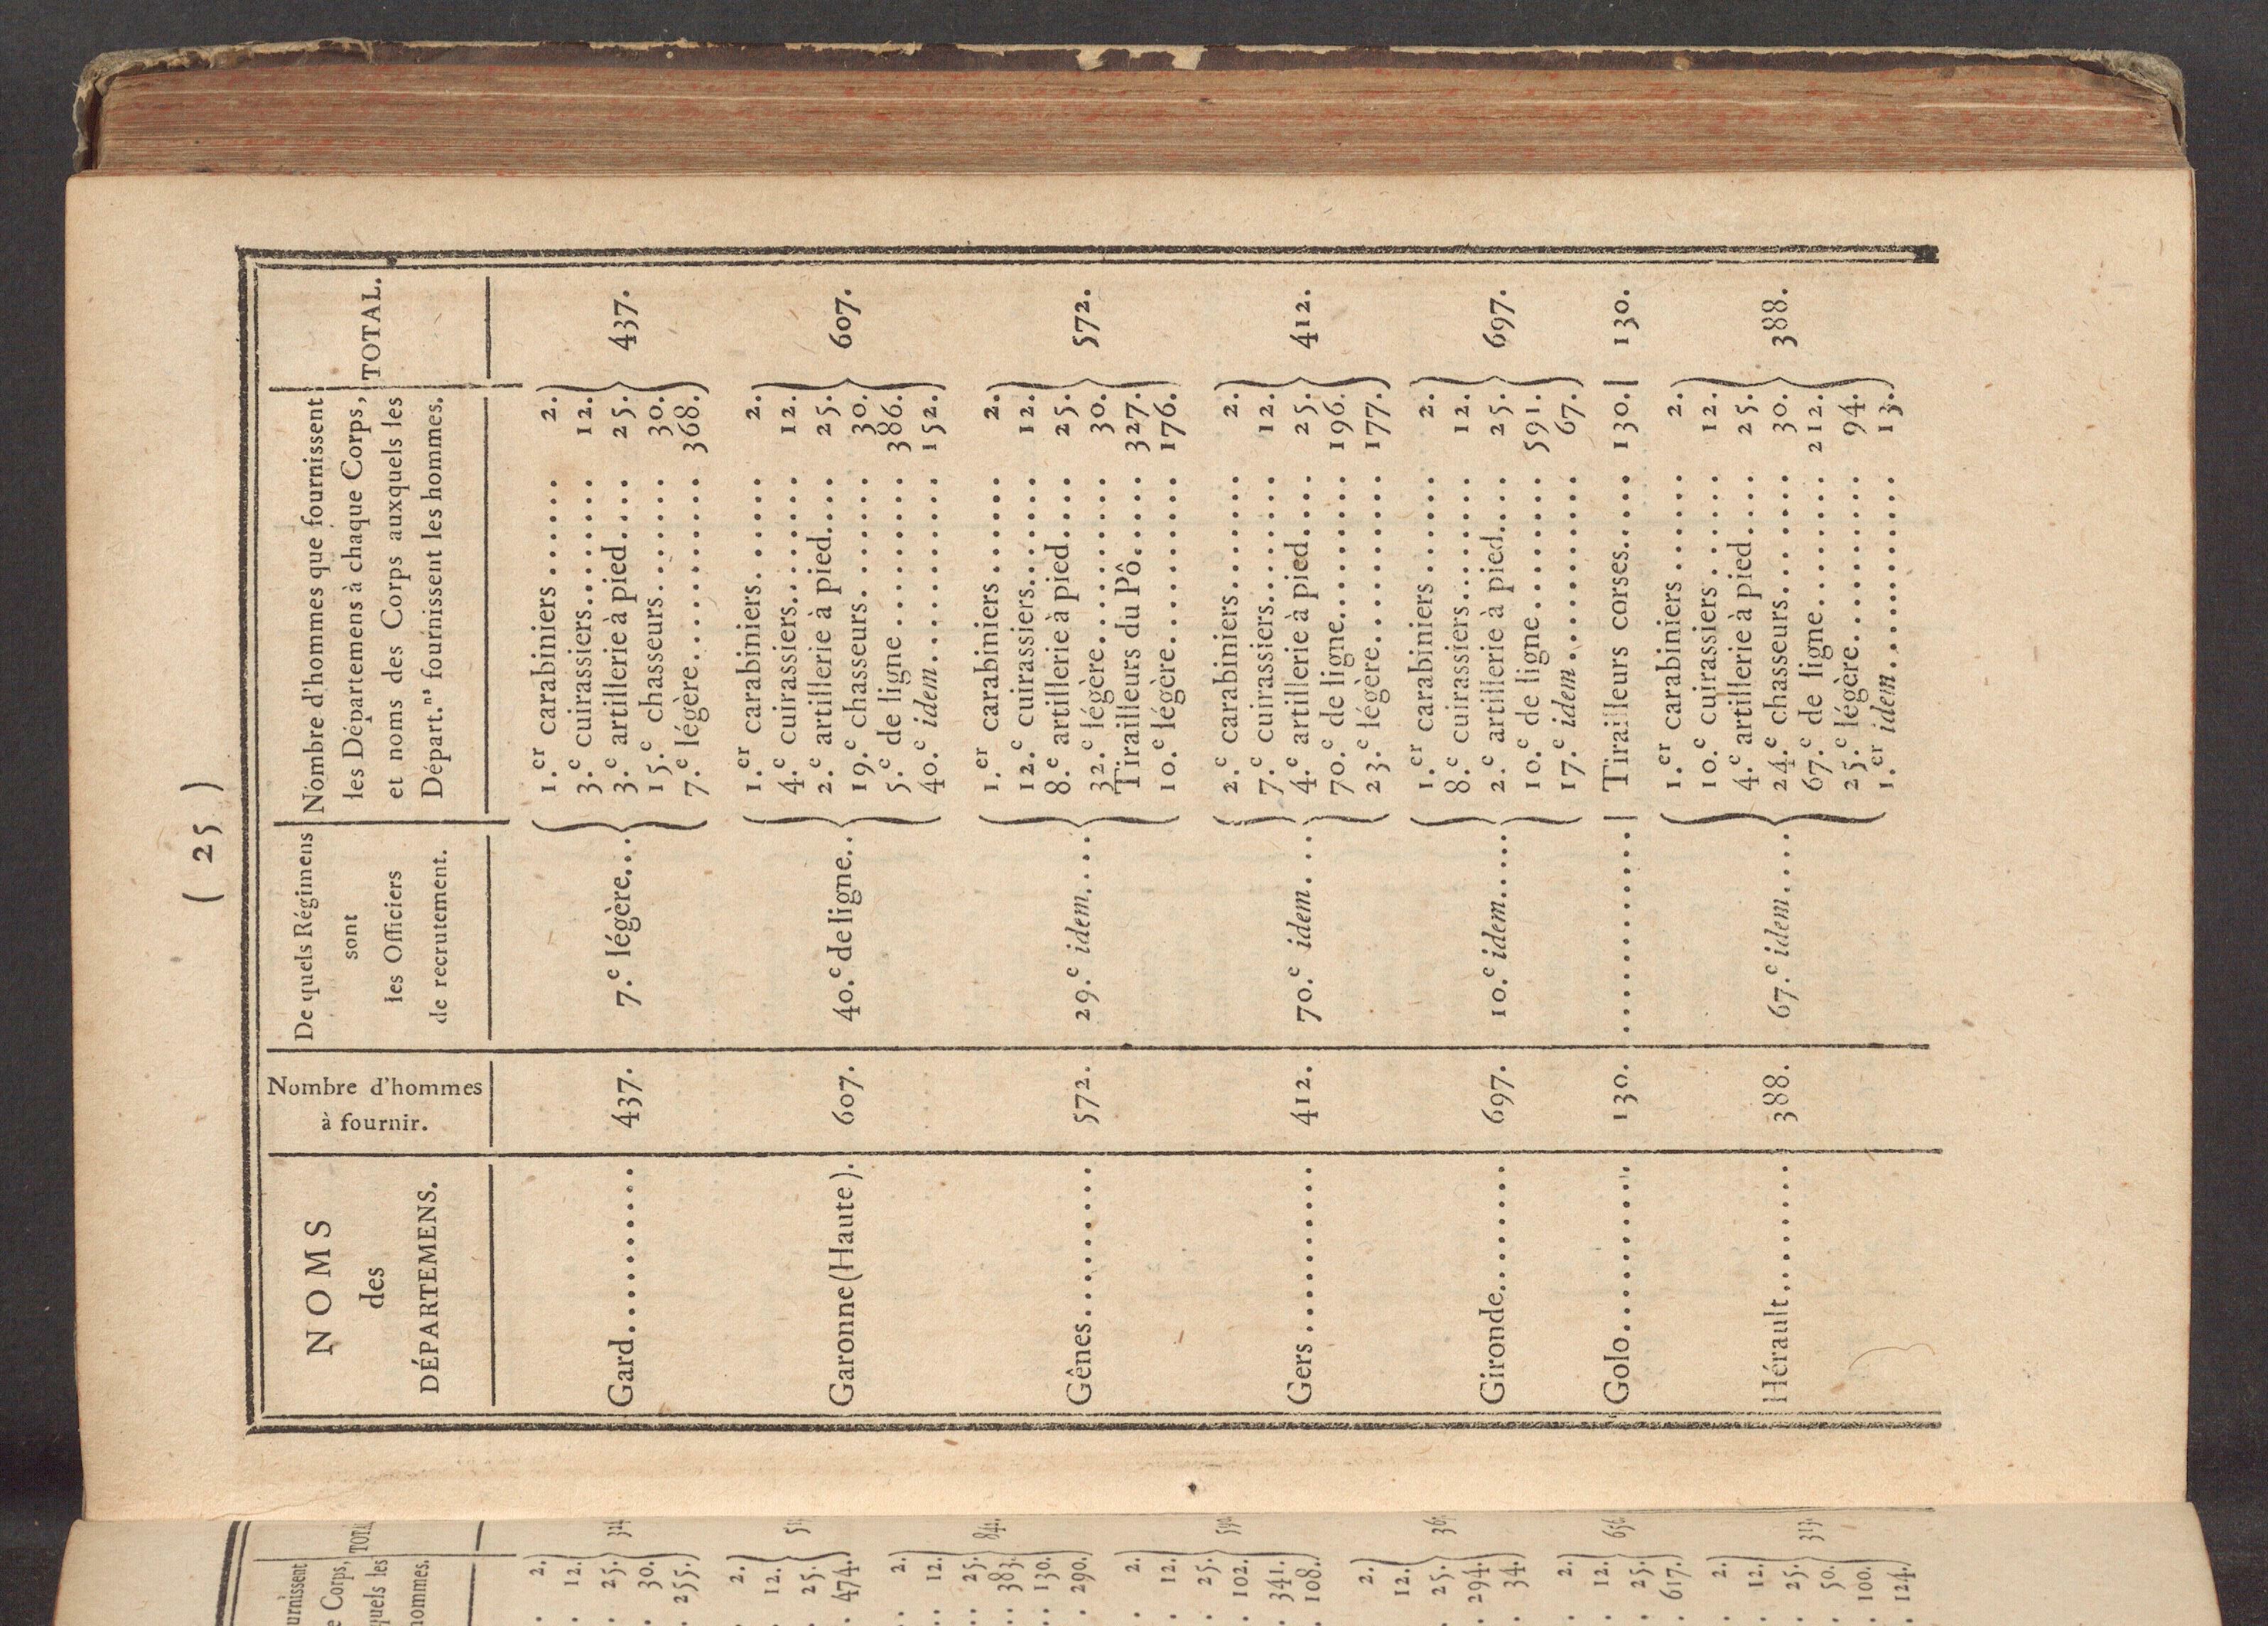 ( 25 )
NOMS
des
DÉPARTEMENS.
Nombre d'hommes
à fournir.
De quels Régimens
sont
les Officiers
de recrutement.
Nombre d'hommes que fournissent
les Départemens à chaque Corps,
et noms des Corps auxquels les
Départ.ns fournissent les hommes.
TOTAL.
Gard........... 437. 7.e légère... 437.
1.er carabiniers...... 2.
3.e cuirassiers....... 12.
3.e artillerie à pied.... 25.
15.e chasseurs...... 30.
7.e légère.......... 368.
Garonne (Haute). 607. 40.e de ligne.. 607.
1.er carabiniers...... 2.
4.e cuirassiers....... 12.
2.e artillerie à pied.... 25.
19.e chasseurs...... 30.
5.e de ligne ........ 386.
40.e idem.......... 152.
Gênes.......... 572. 29.e idem.... 572.
1.er carabiniers ...... 2.
12.e cuirassiers...... 12.
8.e artillerie à pied.... 25.
32.e légère......... 30.
Tirailleurs du Pô..... 327.
10.e légère......... 176.
Gers........... 412. 70.e idem... 412.
2.e carabiniers....... 2.
7.e cuirassiers....... 12.
4.e artillerie à pied.... 25.
70.e de ligne........ 196.
23.e légère......... 177.
Gironde........ 697. 10.e idem..... 697.
1.er carabiniers ...... 2.
8.e cuirassiers....... 12.
2.e artillerie à pied.... 25.
10.e de ligne........ 591.
17.e idem.......... 67.
Golo........... 130. ............. Tirailleurs corses..... 130. 130.
Hérault........ 388. 67.e idem.... 388.
1.er carabiniers ...... 2.
10.e cuirassiers ...... 12.
4.e artillerie à pied.... 25.
24.e chasseurs...... 30.
67.e de ligne........ 212.
25.e légère......... 94.
1.er idem........... 13.
urnissent
e Corps,
quels les
hommes.
2.
12.
25.
30.
255.
2.
12.
25.
474.
2.
12.
25.
383.
130.
290.
841.
2.
12.
25.
102.
341.
108.
590.
2.
12.
25.
294.
34.
2.
12.
25.
617.
656.
2.
12.
25.
50.
100.
124.
313.